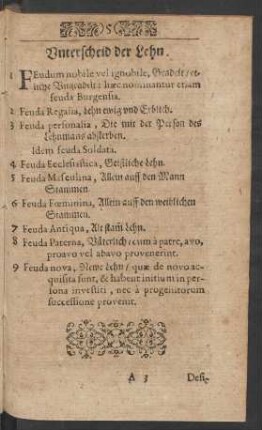 5
Unterscheid der Lehn.
1 FEudum nobile vel ignobile, Geadelt / et-
liche Ungeadelt: hæc nominantur etiam
feuda Burgensia.
2 Feuda Regalia, lehn ewig und Erblich.
3 Feuda personalia, Die mit der Person des
Lehnmans absterben.
Idem feuda Soldata.
4 Feuda Ecclesiastica, Geistliche Lehn.
5 Feuda Masculina, Allein auff den Mann
Stammen.
6 Feuda Fœminina, Allein auff den weiblichen
Stammen.
7 Feuda Antiqua, Alt stam Lehn.
8 Feuda Paterna, Väterlich / cum à patre, avo,
proavo vel abavo provenerint.
9 Feuda nova, Newe Lehn / quæ de novo ac-
quisita sunt, & habent initium in per-
sona investiti, nec à progenitorum
successione provenit.
A 3 Defi-